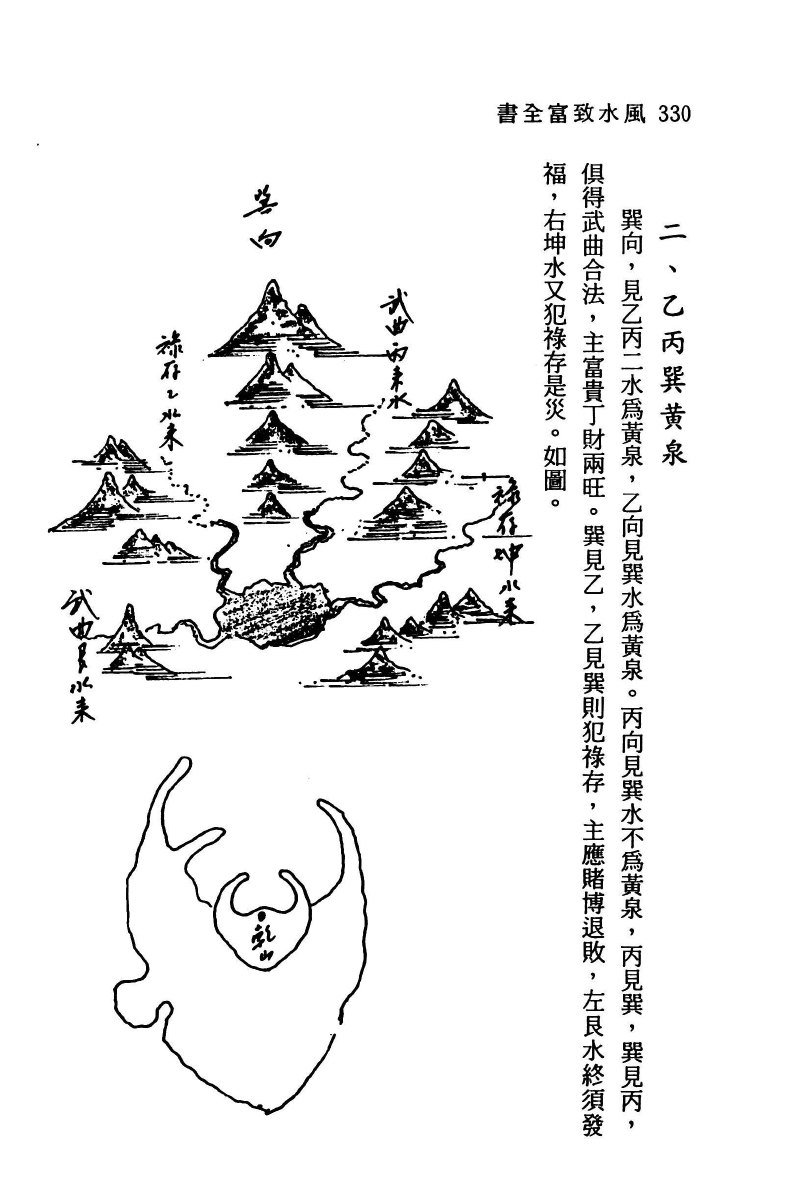 書全富致水風 330
二、乙丙巽黃泉
巽向，見乙丙二水爲黃泉，乙向見巽水爲黃泉。丙向見巽水不爲黃泉，丙見巽，巽見丙，
俱得武曲合法，主富貴丁財兩旺。巽見乙，乙見巽則犯祿存，主應賭博退敗，左艮水終須發
福，右坤水又犯祿存是災。如圖。
巽向
武曲丙来水
祿存乙水来
祿存坤水来
武曲艮水来
乾山